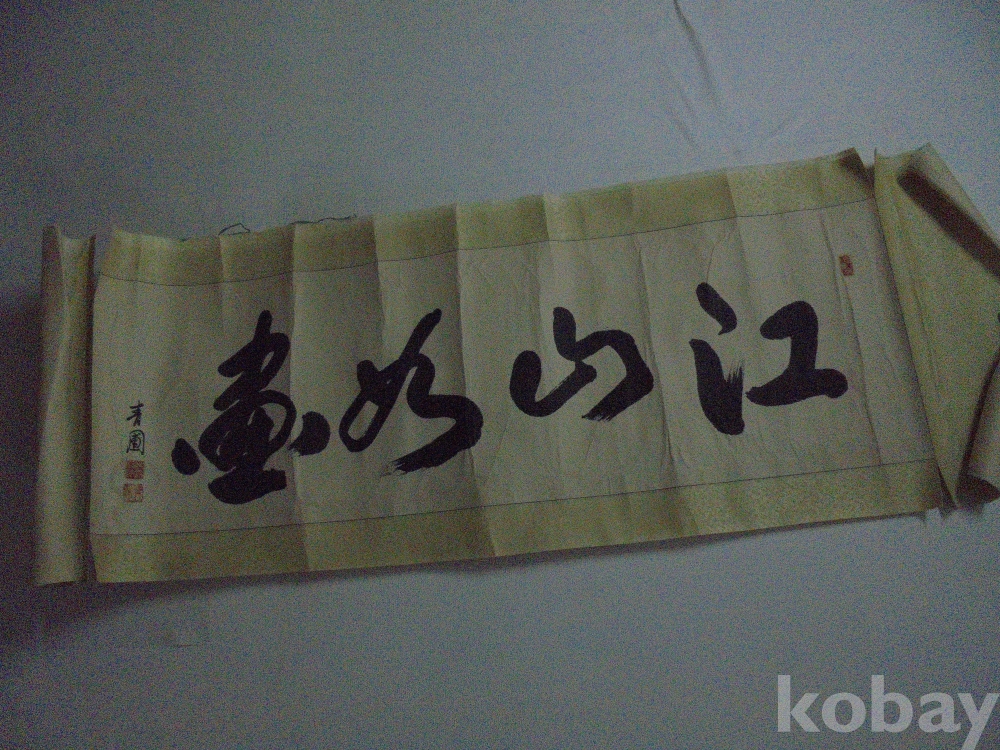 江山如畫
青園
kobay